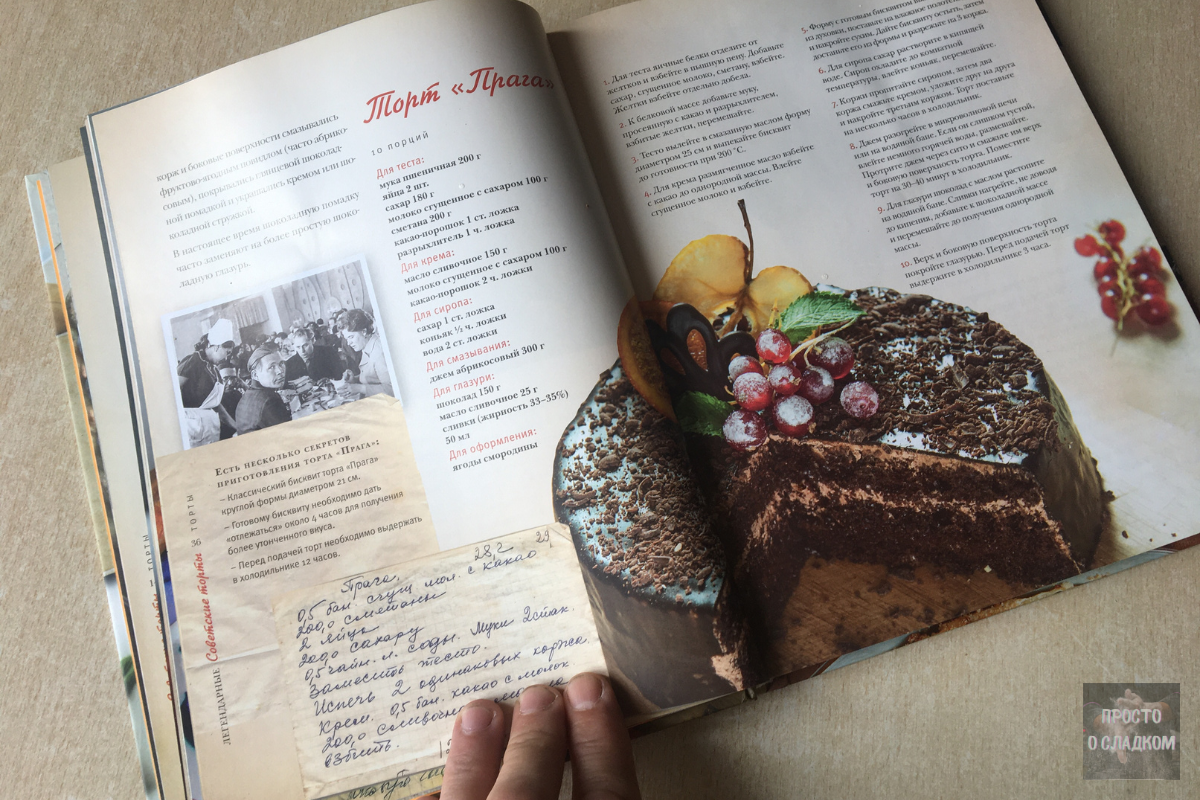 корж и боковые поверхности смазывались
фруктовоягодным повидлом (часто абрико-
совым), покрывались глянцевой шоколад-
ной помадкой и украшались кремом или шо-
коладной стружкой.
В настоящее время шоколадную помадку
часто заменяют на более простую шоко-
ладную глазурь.
Торт «Прага»
10 ПОРЦИЙ
Для теста:
мука пшеничная 200 г
яйца 2 шт.
сахар 180 г
молоко сгущенное с сахаром 100 г
сметана 200 г
какао-порошок 1 ст. ложка
разрыхлитель 1 ч. ложка
Для крема:
масло сливочное 150 г
молоко сгущенное с сахаром 100 г
какао-порошок 2 ч. ложки
Для сиропа:
сахар 1 ст. ложка
коньяк ½ ч. ложки
вода 2 ст. ложки
Для смазывания:
джем абрикосовый 300 г
Для глазури:
шоколад 150 г
масло сливочное 25 г
сливки (жирность 33–35%)
50 мл
Для оформления:
ягоды смородины
ЕСТЬ НЕСКОЛЬКО СЕКРЕТОВ
ПРИГОТОВЛЕНИЯ ТОРТА «ПРАГА»:
– Классический бисквит торта «Прага»
круглой формы диаметром 21 см.
– Готовому бисквиту необходимо дать
«отлежаться» около 4 часов для получения
более утонченного вкуса.
– Перед подачей торт необходимо выдержать
в холодильнике 12 часов.
ЛЕГЕНДАРНЫЕ Советские торты 36 ТОРТЫ
28,2 29
Прага,
0,5 бан. сгущ мол. с какао
200,0 сметаны
2 яйца
200,0 сахару
0,5 чайн. л. соды. Муки 2 стак.
Замесить тесто.
Испечь 2 одинаковых коржа.
Крем. 0,5 бан. какао с молок
200,0 сливочн
взбить.
1. Для теста яичные белки отделите от
желтков и взбейте в пышную пену. Добавьте
сахар, сгущенное молоко, сметану, взбейте.
Желтки взбейте отдельно добела.
2. К белковой массе добавьте муку,
просеянную с какао и разрыхлителем,
взбитые желтки, перемешайте.
3. Тесто вылейте в смазанную маслом форму
диаметром 25 см и выпекайте бисквит
до готовности при 200 °С.
4. Для крема размягченное масло взбейте
с какао до однородной массы. Влейте
сгущенное молоко и взбейте.
5. Форму с готовым бисквитом
из духовки, поставьте на влажное
и накройте сухим. Дайте бисквиту остыть, затем
достаньте его из формы и разрежьте на 3 коржа.
6. Для сиропа сахар растворите в кипящей
воде. Сироп охладите до комнатной
температуры, влейте коньяк, перемешайте.
7. Коржи пропитайте сиропом, затем два
коржа смажьте кремом, уложите друг на друга
и накройте третьим коржом. Торт поставьте
на несколько часов в холодильник.
8. Джем разогрейте в микроволновой печи
или на водяной бане. Если он слишком густой,
влейте немного горячей воды, размешайте.
Протрите джем через сито и смажьте им верх
и боковую поверхность торта. Поместите
торт на 30–40 минут в холодильник.
9. Для глазури шоколад с маслом растопите
на водяной бане. Сливки нагрейте, не доводя
до кипения, добавьте к шоколадной массе
и перемешайте до получения однородной
массы.
10. Верх и боковую поверхность торта
покройте глазурью. Перед подачей торт
выдержите в холодильнике 3 часа.
ПРОСТО
О СЛАДКОМ